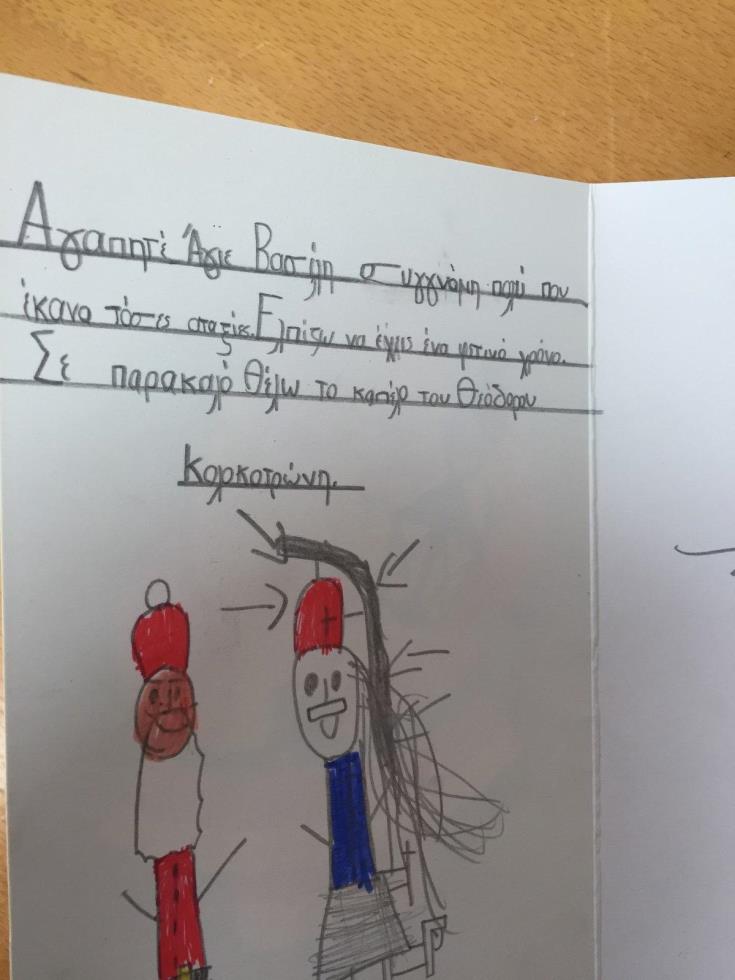 Αγαπητέ Άγιε Βασίλη συγγνόμη που
έκανα τόσες αταξίες. Ελπίζω να έχεις ένα χρόνο.
Σε παρακαλό θέλω το καπέλο του Θεόδορου
Κολκοτρώνη.